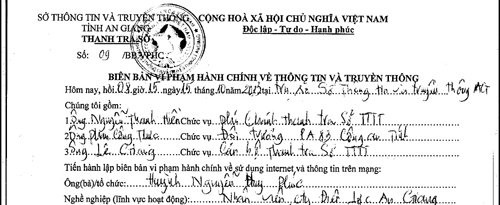 SỞ THÔNG TIN VÀ TRUYỀN THÔNG CỘNG HOÀ XÃ HỘI CHỦ NGHĨA VIỆT NAM
TỈNH AN GIANG Độc lập - Tự do - Hạnh phúc
THANH TRA SỞ
Số: 09 /BB-VPHC
BIÊN BẢN VI PHẠM HÀNH CHÍNH VỀ THÔNG TIN VÀ TRUYỀN THÔNG
Hôm nay, hồi 08 giờ 15 ngày 15 tháng 10 tại Sở Thông tin truyền thông
Chúng tôi gồm:
1. Ông Nguyễn Thanh Hiền Chức vụ phó Chánh thanh tra Sở TTTT
2. Ông Chức vụ Đội trưởng PA.83 Công an Tỉnh
3. Ông Lê Chức vụ Cán bộ thanh tra Sở TTTT
Tiến hành lập biên bản vi phạm hành chính về sử dụng internet và thông tin trên mạng:
Ông(bà)/tổ chức: Huỳnh Nguyễn Huy Phúc
Nghề nghiệp (lĩnh vực hoạt động): Nhân viên cty Điện lực An Giang